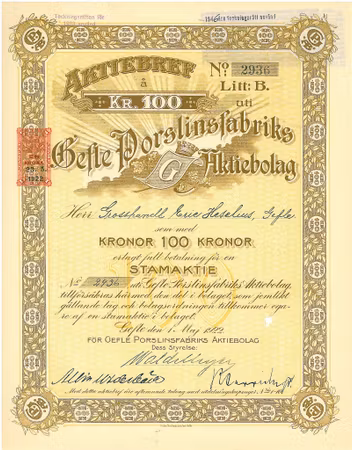 Teckningsrätten för
AKTIEBREF
å
KR. 100
No 2936
Litt: B.
uti
Gefle Porslinsfabriks
Aktiebolag
G
Herr Grosshandl. Eric Heselius, Gefle
som med
KRONOR 100 KRONOR
erlagt full betalning för en
STAMAKTIE
No 2936 uti Gefle Porslinsfabriks Aktiebolag,
tillförsäkras härmed den del i bolaget, som jemlikt
gällande lag och bolagsordningen tillkommer ega-
re af en stamaktie i bolaget.
Gefle den 1 Maj 1922
FÖR GEFLE PORSLINSFABRIKS AKTIEBOLAG
Dess Styrelse:
Med detta aktiebref äro utlemnade